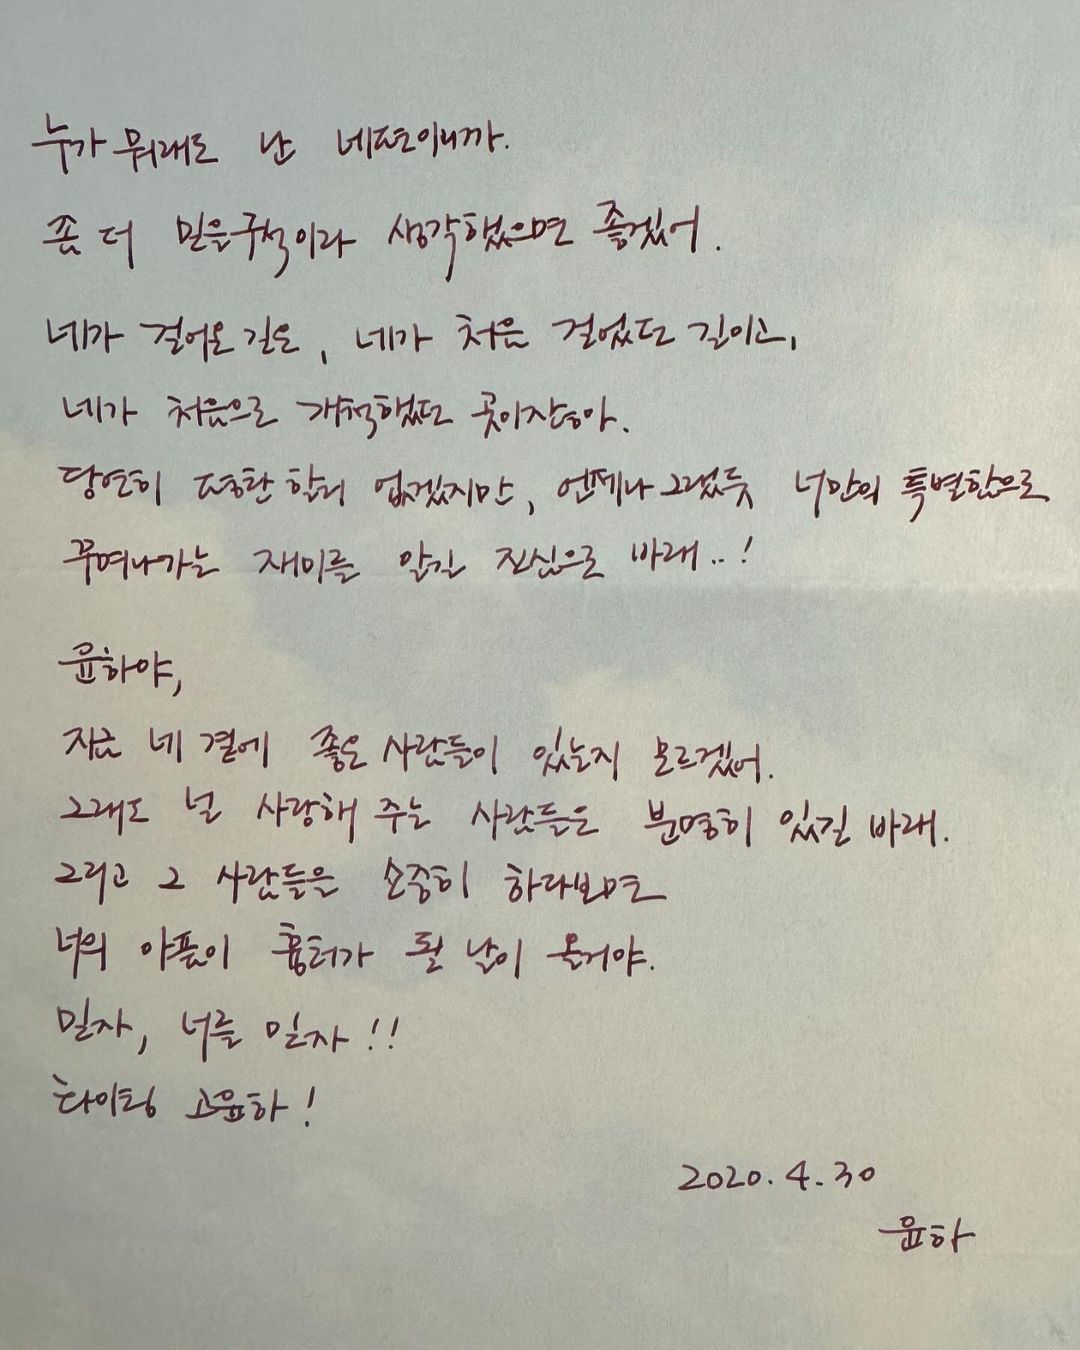 누가 뭐래도 난 네편이니까.
좀 더 믿을구석이라 생각했으면 좋겠어.
네가 걸어온 길은, 네가 처음 걸었던 길이고,
네가 처음으로 개척했던 곳이잖아.
당연히 평탄함의 없겠지만, 언제나 그랬듯 너만의 특별함으로
꾸며나가는 재미를 알길 진심으로 바래..!
윤하야,
지금 네 곁에 좋은 사람들이 있는지 모르겠어.
그래도 널 사랑해 주는 사람들은 분명히 있길 바래.
그리고 그 사람들을 소중히 하다보면
너의 아픔이 흉터가 될 날이 올거야.
믿자, 너를 믿자!!
화이팅 고윤하!
2020.4.30
윤하